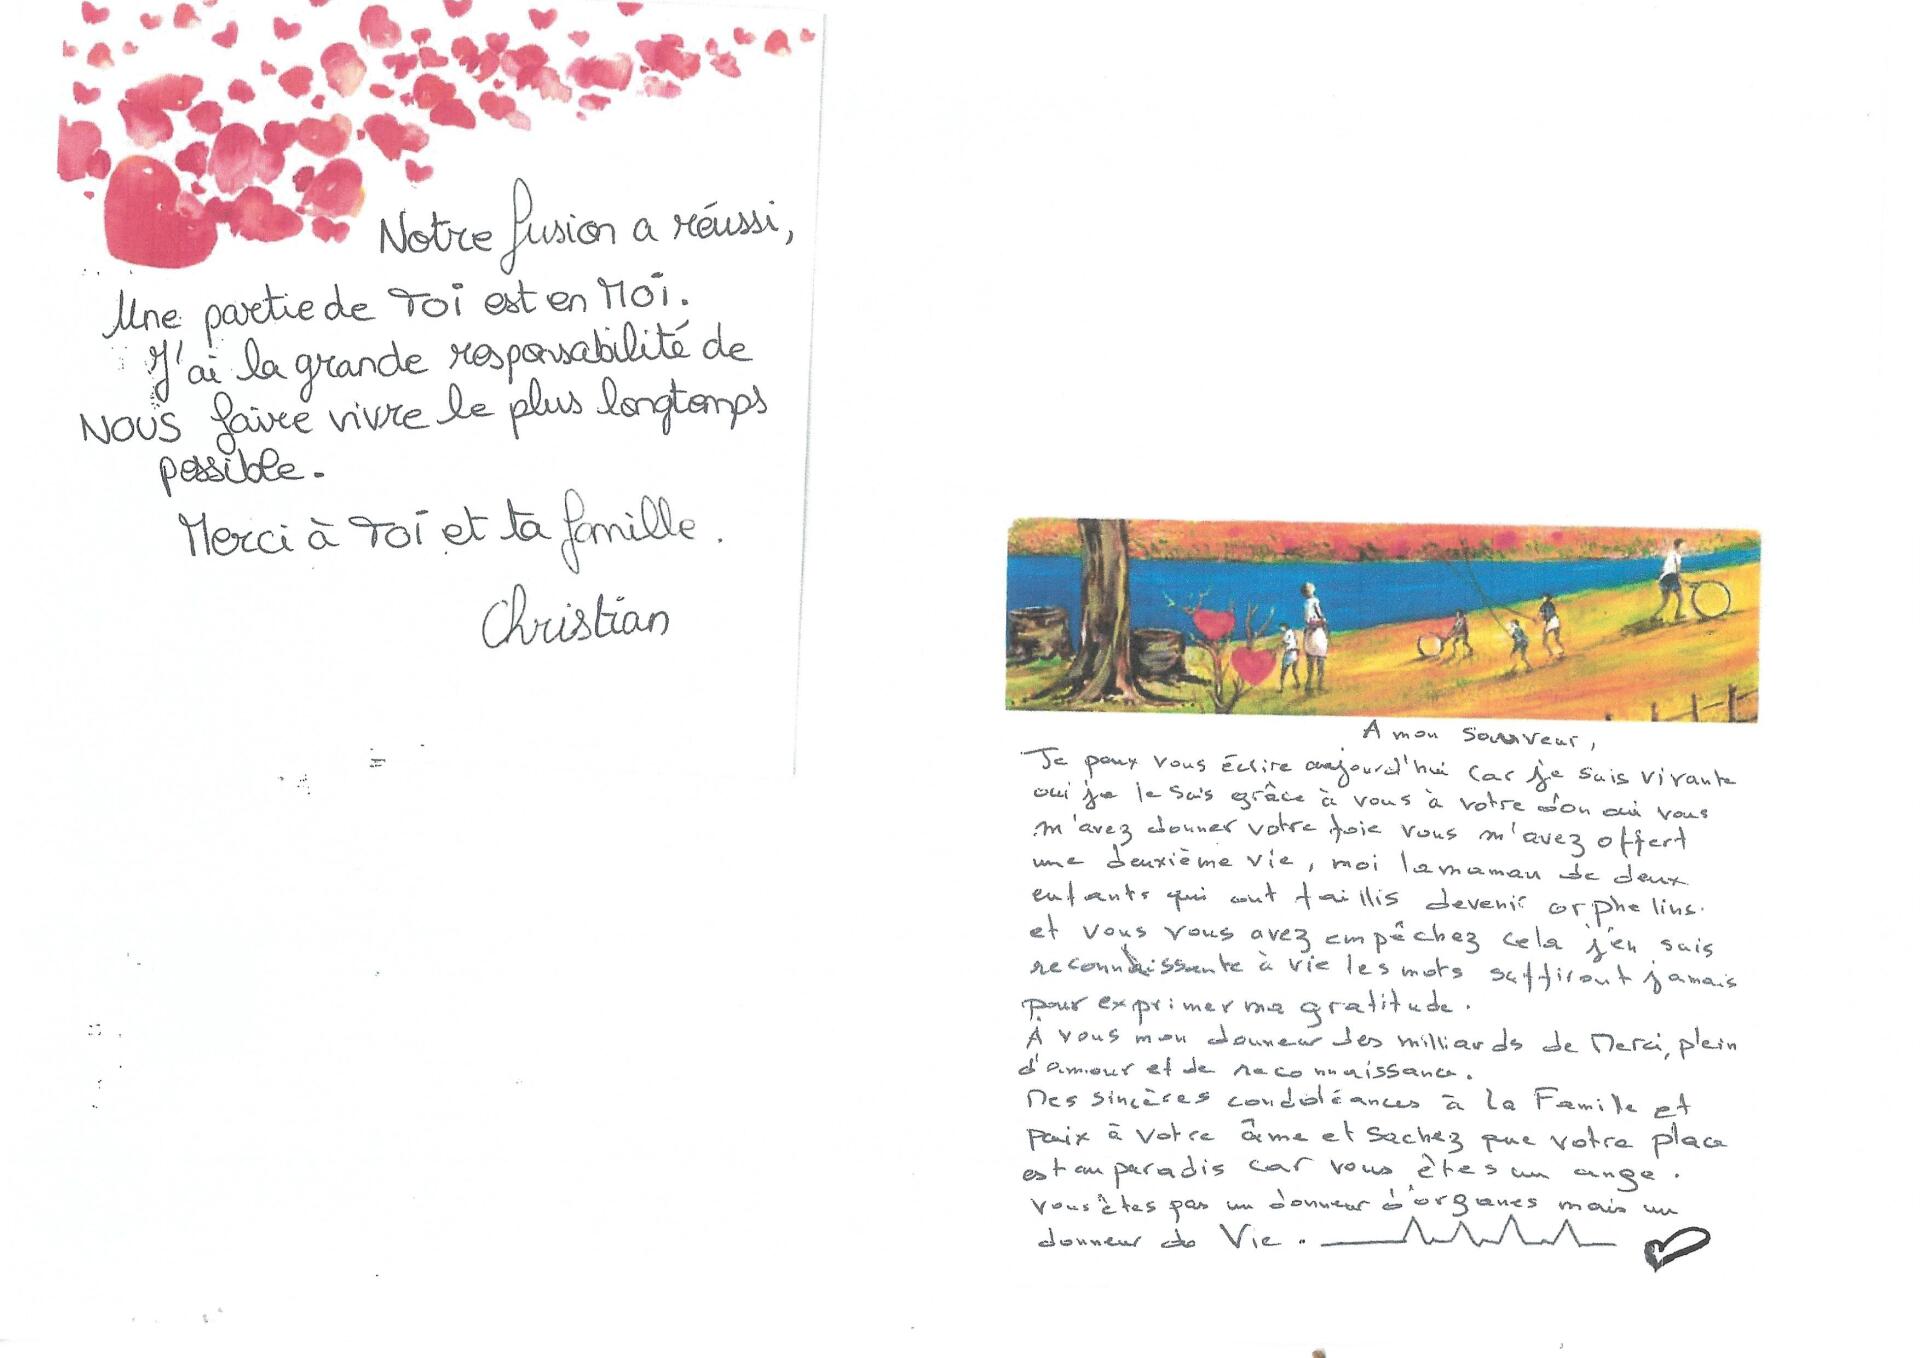 Notre fusion a réussi,
Une partie de Toi est en Moi.
J'ai la grande responsabilité de
NOUS faire vivre le plus longtemps
possible.
Merci à Toi et ta famille.
Christian
A mon sauveur,
Je peux vous écrire aujourd'hui car je suis vivante
oui je le suis grâce à vous à votre don oui vous
m'avez donner votre foie vous m'avez offert
une deuxième vie, moi la maman de deux
enfants qui ont faillis devenir orphelins.
et vous vous avez empêchez cela j'en suis
reconnaissante à vie les mots suffiront jamais
pour exprimer ma gratitude.
À vous mon donneur des milliards de Merci, plein
d'amour et de reconnaissance.
Mes sincères condoléances à la Famille et
paix à votre âme et sachez que votre place
est au paradis car vous êtes un ange.
Vous êtes pas un donneur d'organes mais un
donneur de Vie.